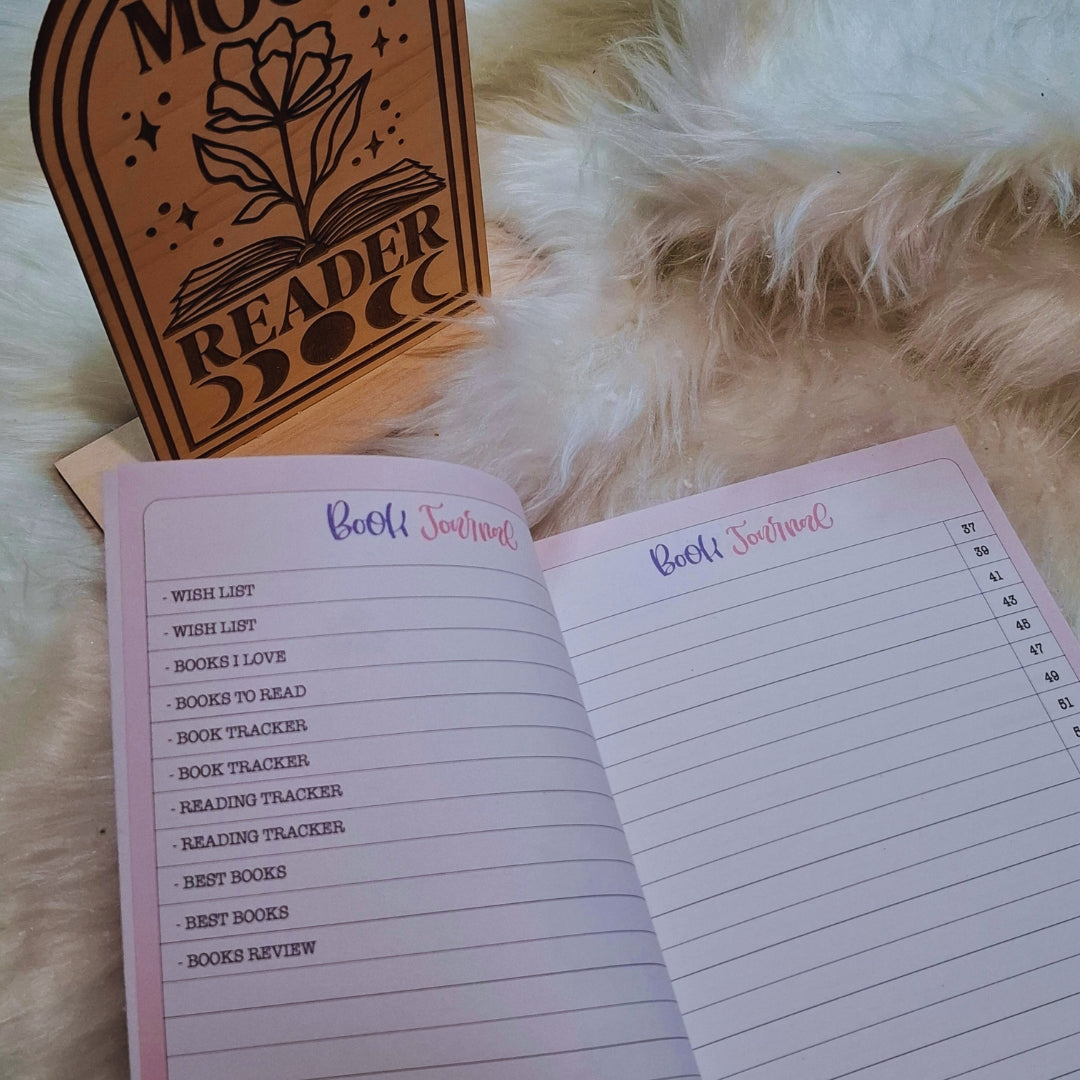 READER
Book Journal
- WISH LIST
- WISH LIST
- BOOKS I LOVE
- BOOKS TO READ
- BOOK TRACKER
- BOOK TRACKER
- READING TRACKER
- READING TRACKER
- BEST BOOKS
- BEST BOOKS
- BOOKS REVIEW
Book Journal
37
39
41
43
45
47
49
51